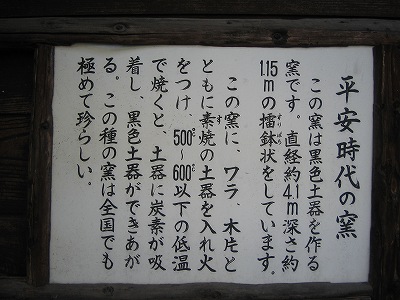 平安時代の窯
この窯は黒色土器を作る
窯です。直経約4.1m深さ約
1.15mの擂鉢状をしています。
この窯に、ワラ、木片と
ともに素焼の土器を入れ火
をつけ、500°~600°以下の低温
で焼くと、土器に炭素が吸
着し、黒色土器ができあが
る。この種の窯は全国でも
極めて珍らしい。